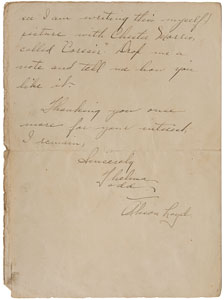 as I am writing this myself)
picture with Chester Morris,
called "Corsair". Drop me a
note and tell me how you
like it-
Thanking you once
more for your interest,
I remain,
Sincerely
Thelma
Todd